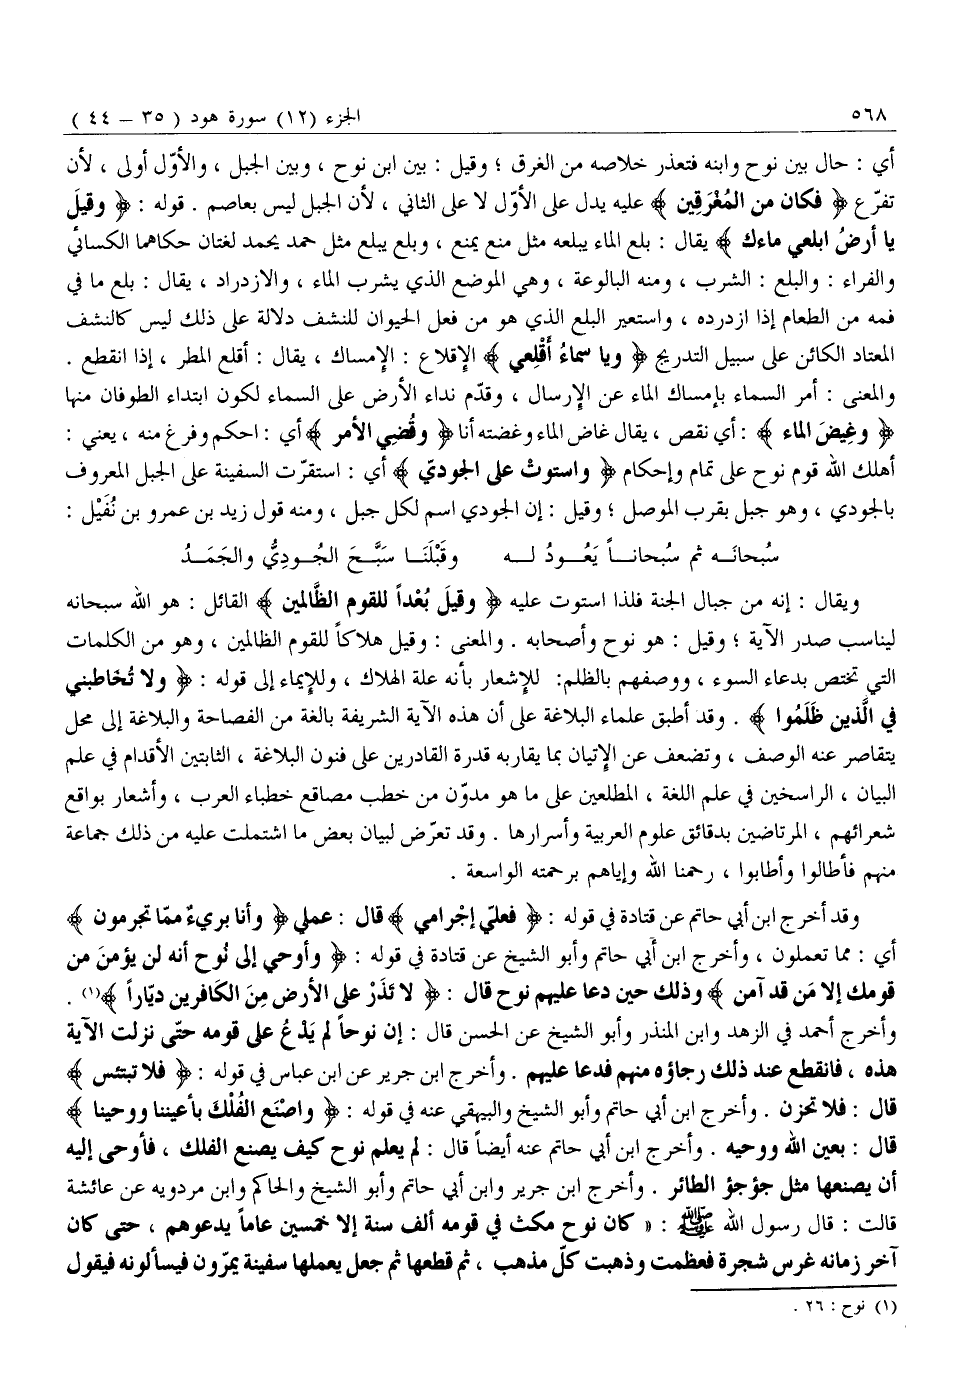 ٥٦٨
الجزء (١٢) سورة هود ( ٣٥ – ٤٤ )
أي : حال بين نوح وابنه فتعذر خلاصه من الغرق ؛ وقيل : بين ابن نوح ، وبين الجبل ، والأوّل أولى ، لأن
تفرّع ﴿ فكان من المُغْرَقِين ﴾ عليه يدل على الأوّل لا على الثاني ، لأن الجبل ليس بعاصم . قوله : ﴿ وقيلَ
يا أرضُ ابلعي ماءك ﴾ يقال : بلع الماء يبلعه مثل منع يمنع ، وبلع يبلع مثل حمد يحمد لغتان حكاهما الكسائي
والفراء : والبلع : الشرب ، ومنه البالوعة ، وهي الموضع الذي يشرب الماء ، والازدراد ، يقال : بلع ما في
فمه من الطعام إذا ازدرده ، واستعير البلع الذي هو من فعل الحيوان للنشف دلالة على ذلك ليس كالنشف
المعتاد الكائن على سبيل التدريج ﴿ ويا سماءُ أَقْلِعي ﴾ الإقلاع : الإمساك ، يقال : أقلع المطر ، إذا انقطع .
والمعنى : أمر السماء بإمساك الماء عن الإرسال ، وقدّم نداء الأرض على السماء لكون ابتداء الطوفان منها
﴿ وغِيضَ الماء ﴾ : أي نقص ، يقال غاض الماء وغضته أنا ﴿ وقُضِي الأمر ﴾ أي : احكم وفرغ منه ، يعني :
أهلك الله قوم نوح على تمام وإحكام ﴿ واستوتْ على الجوديّ ﴾ أي : استقرّت السفينة على الجبل المعروف
بالجودي ، وهو جبل بقرب الموصل ؛ وقيل : إن الجودي اسم لكل جبل ، ومنه قول زيد بن عمرو بن نُفَيْل :
سُبحانَـه ثم سُبحانـاً يَعُـودُ لـه     وقَبْلَنَـا سَبَّـحَ الجُـودِيُّ والجَمَـدُ
ويقال : إنه من جبال الجنة فلذا استوت عليه ﴿ وقيلَ بُعْداً للقوم الظَّالمين ﴾ القائل : هو الله سبحانه
ليناسب صدر الآية ؛ وقيل : هو نوح وأصحابه . والمعنى : وقيل هلاكاً للقوم الظالمين ، وهو من الكلمات
التي تختص بدعاء السوء ، ووصفهم بالظلم: للإشعار بأنه علة الهلاك ، وللإيماء إلى قوله : ﴿ ولا تُخَاطبني
في الَّذين ظَلَمُوا ﴾ . وقد أطبق علماء البلاغة على أن هذه الآية الشريفة بالغة من الفصاحة والبلاغة إلى محل
يتقاصر عنه الوصف ، وتضعف عن الإتيان بما يقاربه قدرة القادرين على فنون البلاغة ، الثابتين الأقدام في علم
البيان ، الراسخين في علم اللغة ، المطلعين على ما هو مدوّن من خطب مصاقع خطباء العرب ، وأشعار بواقع
شعرائهم ، المرتاضين بدقائق علوم العربية وأسرارها . وقد تعرّض لبيان بعض ما اشتملت عليه من ذلك جماعة
منهم فأطالوا وأطابوا ، رحمنا الله وإياهم برحمته الواسعة .
وقد أخرج ابن أبي حاتم عن قتادة في قوله : ﴿ فعلي إجْرامي ﴾ قال : عملي ﴿ وأنا بريءٌ ممّا تجرمون ﴾
أي : مما تعملون ، وأخرج ابن أبي حاتم وأبو الشيخ عن قتادة في قوله : ﴿ وأوحي إلى نُوح أنه لن يؤمنَ من
قومك إلا مَن قد آمن ﴾ وذلك حين دعا عليهم نوح قال : ﴿ لا تَذَرْ على الأرض مِنَ الكافرين ديّاراً ﴾(١) .
وأخرج أحمد في الزهد وابن المنذر وأبو الشيخ عن الحسن قال : إن نوحاً لم يَدْعُ على قومه حتّى نزلت الآية
هذه ، فانقطع عند ذلك رجاؤه منهم فدعا عليهم . وأخرج ابن جرير عن ابن عباس في قوله : ﴿ فلا تبتئس ﴾
قال : فلا تحزن . وأخرج ابن أبي حاتم وأبو الشيخ والبيهقي عنه في قوله : ﴿ واصْنَع الفُلْكَ بأعيننا ووحينا ﴾
قال : بعين الله ووحيه . وأخرج ابن أبي حاتم عنه أيضاً قال : لم يعلم نوح كيف يصنع الفلك ، فأوحى إليه
أن يصنعها مثل جؤجؤ الطائر . وأخرج ابن جرير وابن أبي حاتم وأبو الشيخ والحاكم وابن مردويه عن عائشة
قالت : قال رسول الله ﷺ : « كان نوح مكث في قومه ألف سنة إلا خمسين عاماً يدعوهم ، حتى كان
آخر زمانه غرس شجرة فعظمت وذهبت كلّ مذهب ، ثم قطعها ثم جعل يعملها سفينة يمرّون فيسألونه فيقول
(١) نوح : ٢٦ .